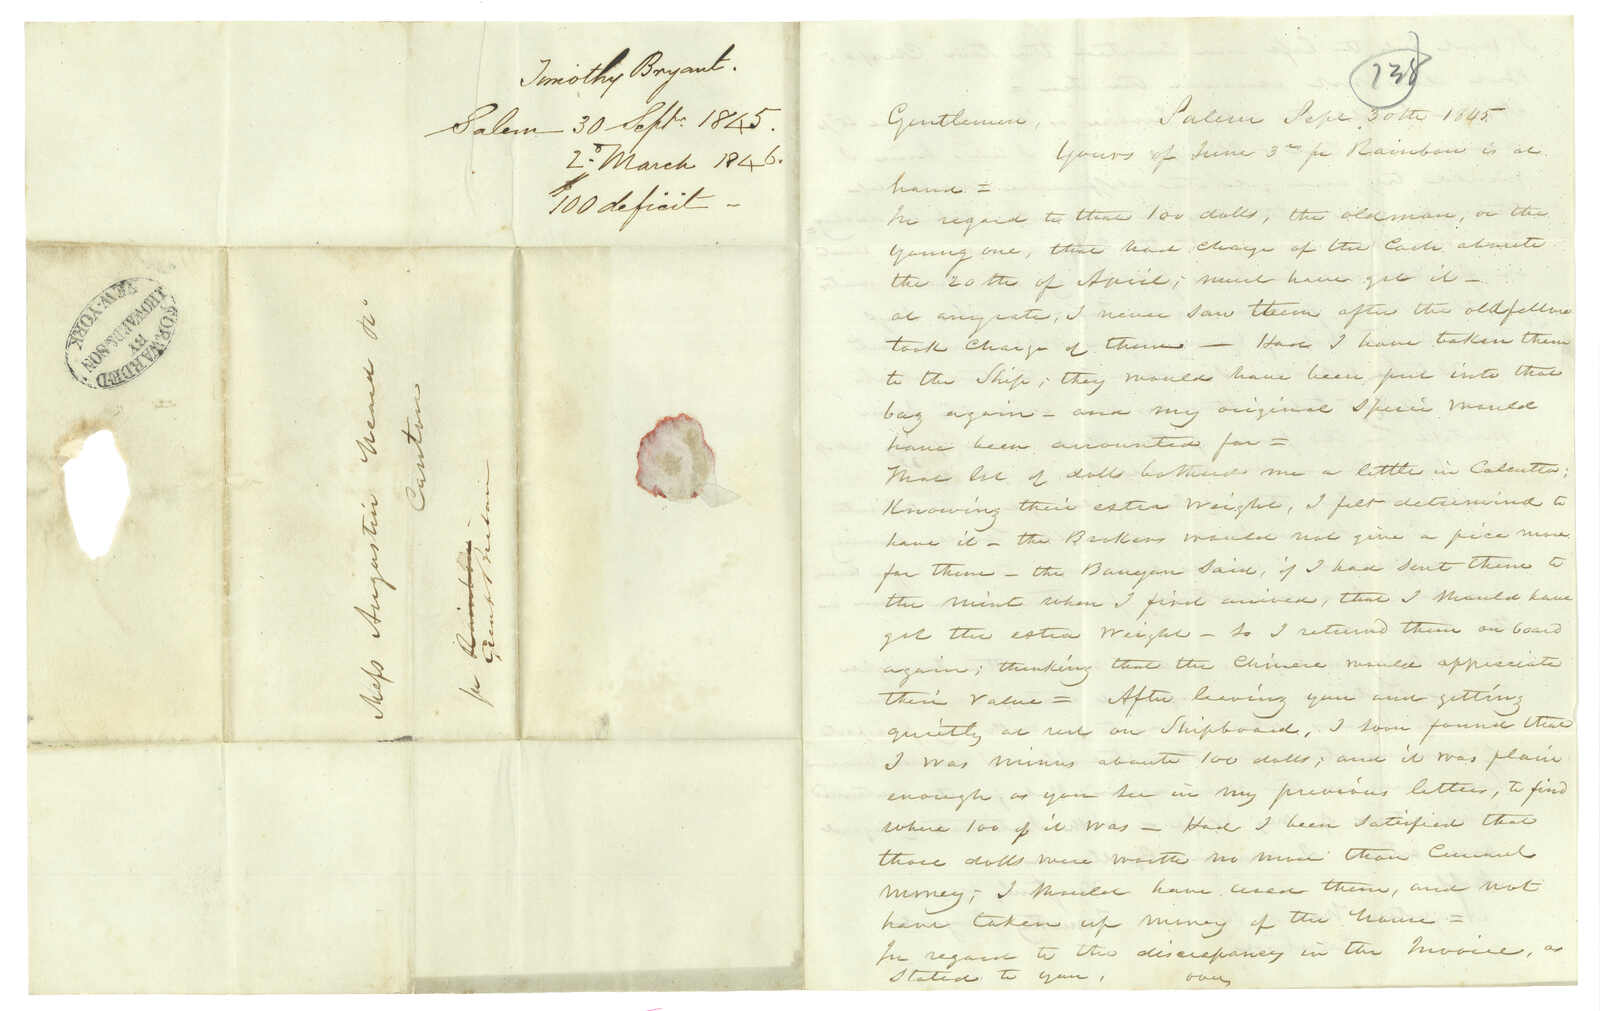 Timothy Bryant.
Salem 30 Septr. 1845.
2d. March 1846.
$100 deficit -
FORWARDED
BY
& SON
NEW-YORK
Mess Augustin Heard & Co
Canton
pr
138
Gentlemen, Salem Sept 30th 1845
Yours of June 3rd pr Rainbow is at
hand =
In regard to that 100 dolls, the old man, or the
young one, that had charge of the Cash aboute
the 20th of April; must have got it -
at anyrate, I never saw them after the oldfellow
took charge of them - Had I have taken them
to the Ship; they would have been put into that
bag again - and my original specie would
have been accounted for =
That lot of dolls bothered me a little in Calcutta;
Knowing their extra Weight, I felt determined to
have it - the Brokers would not give a pice more
for them - the Banyan said, if I had sent them to
the mint when I first arrived, that I should have
got the extra Weight - So I returned them on board
again; thinking that the Chinese would appreciate
their value = After leaving you and getting
quietly at rest on Shipboard, I soon found that
I was minus aboute 100 dolls; and it was plain
enough, as you see in my previous letters, to find
where 100 of it was - Had I been satisfied that
those dolls were worth no more than Current
money; I should have used them, and not
have taken up money of the house =
In regard to the discrepancy in the Invoice, as
stated to you, over